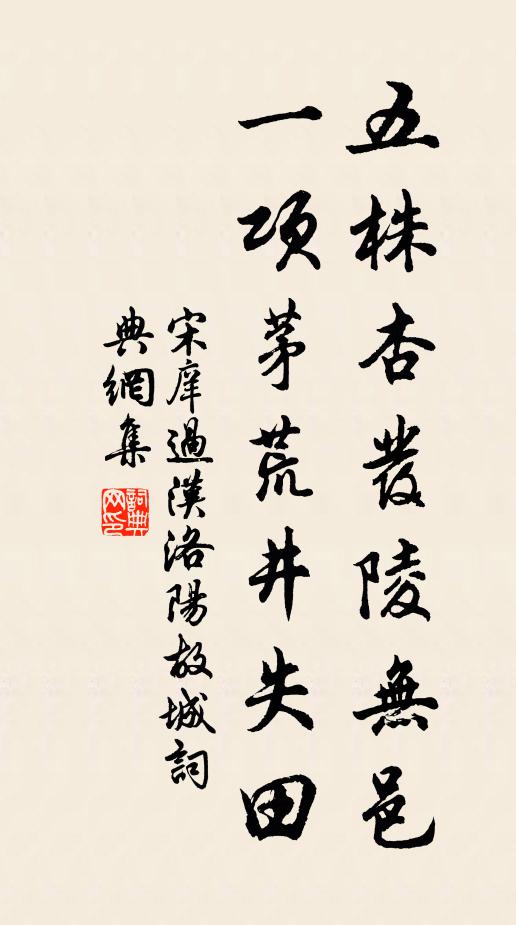 五株杏發陵無邑
一項茅荒井失田
宋庠過漢洛陽故城詞
典網集
詞典
网印